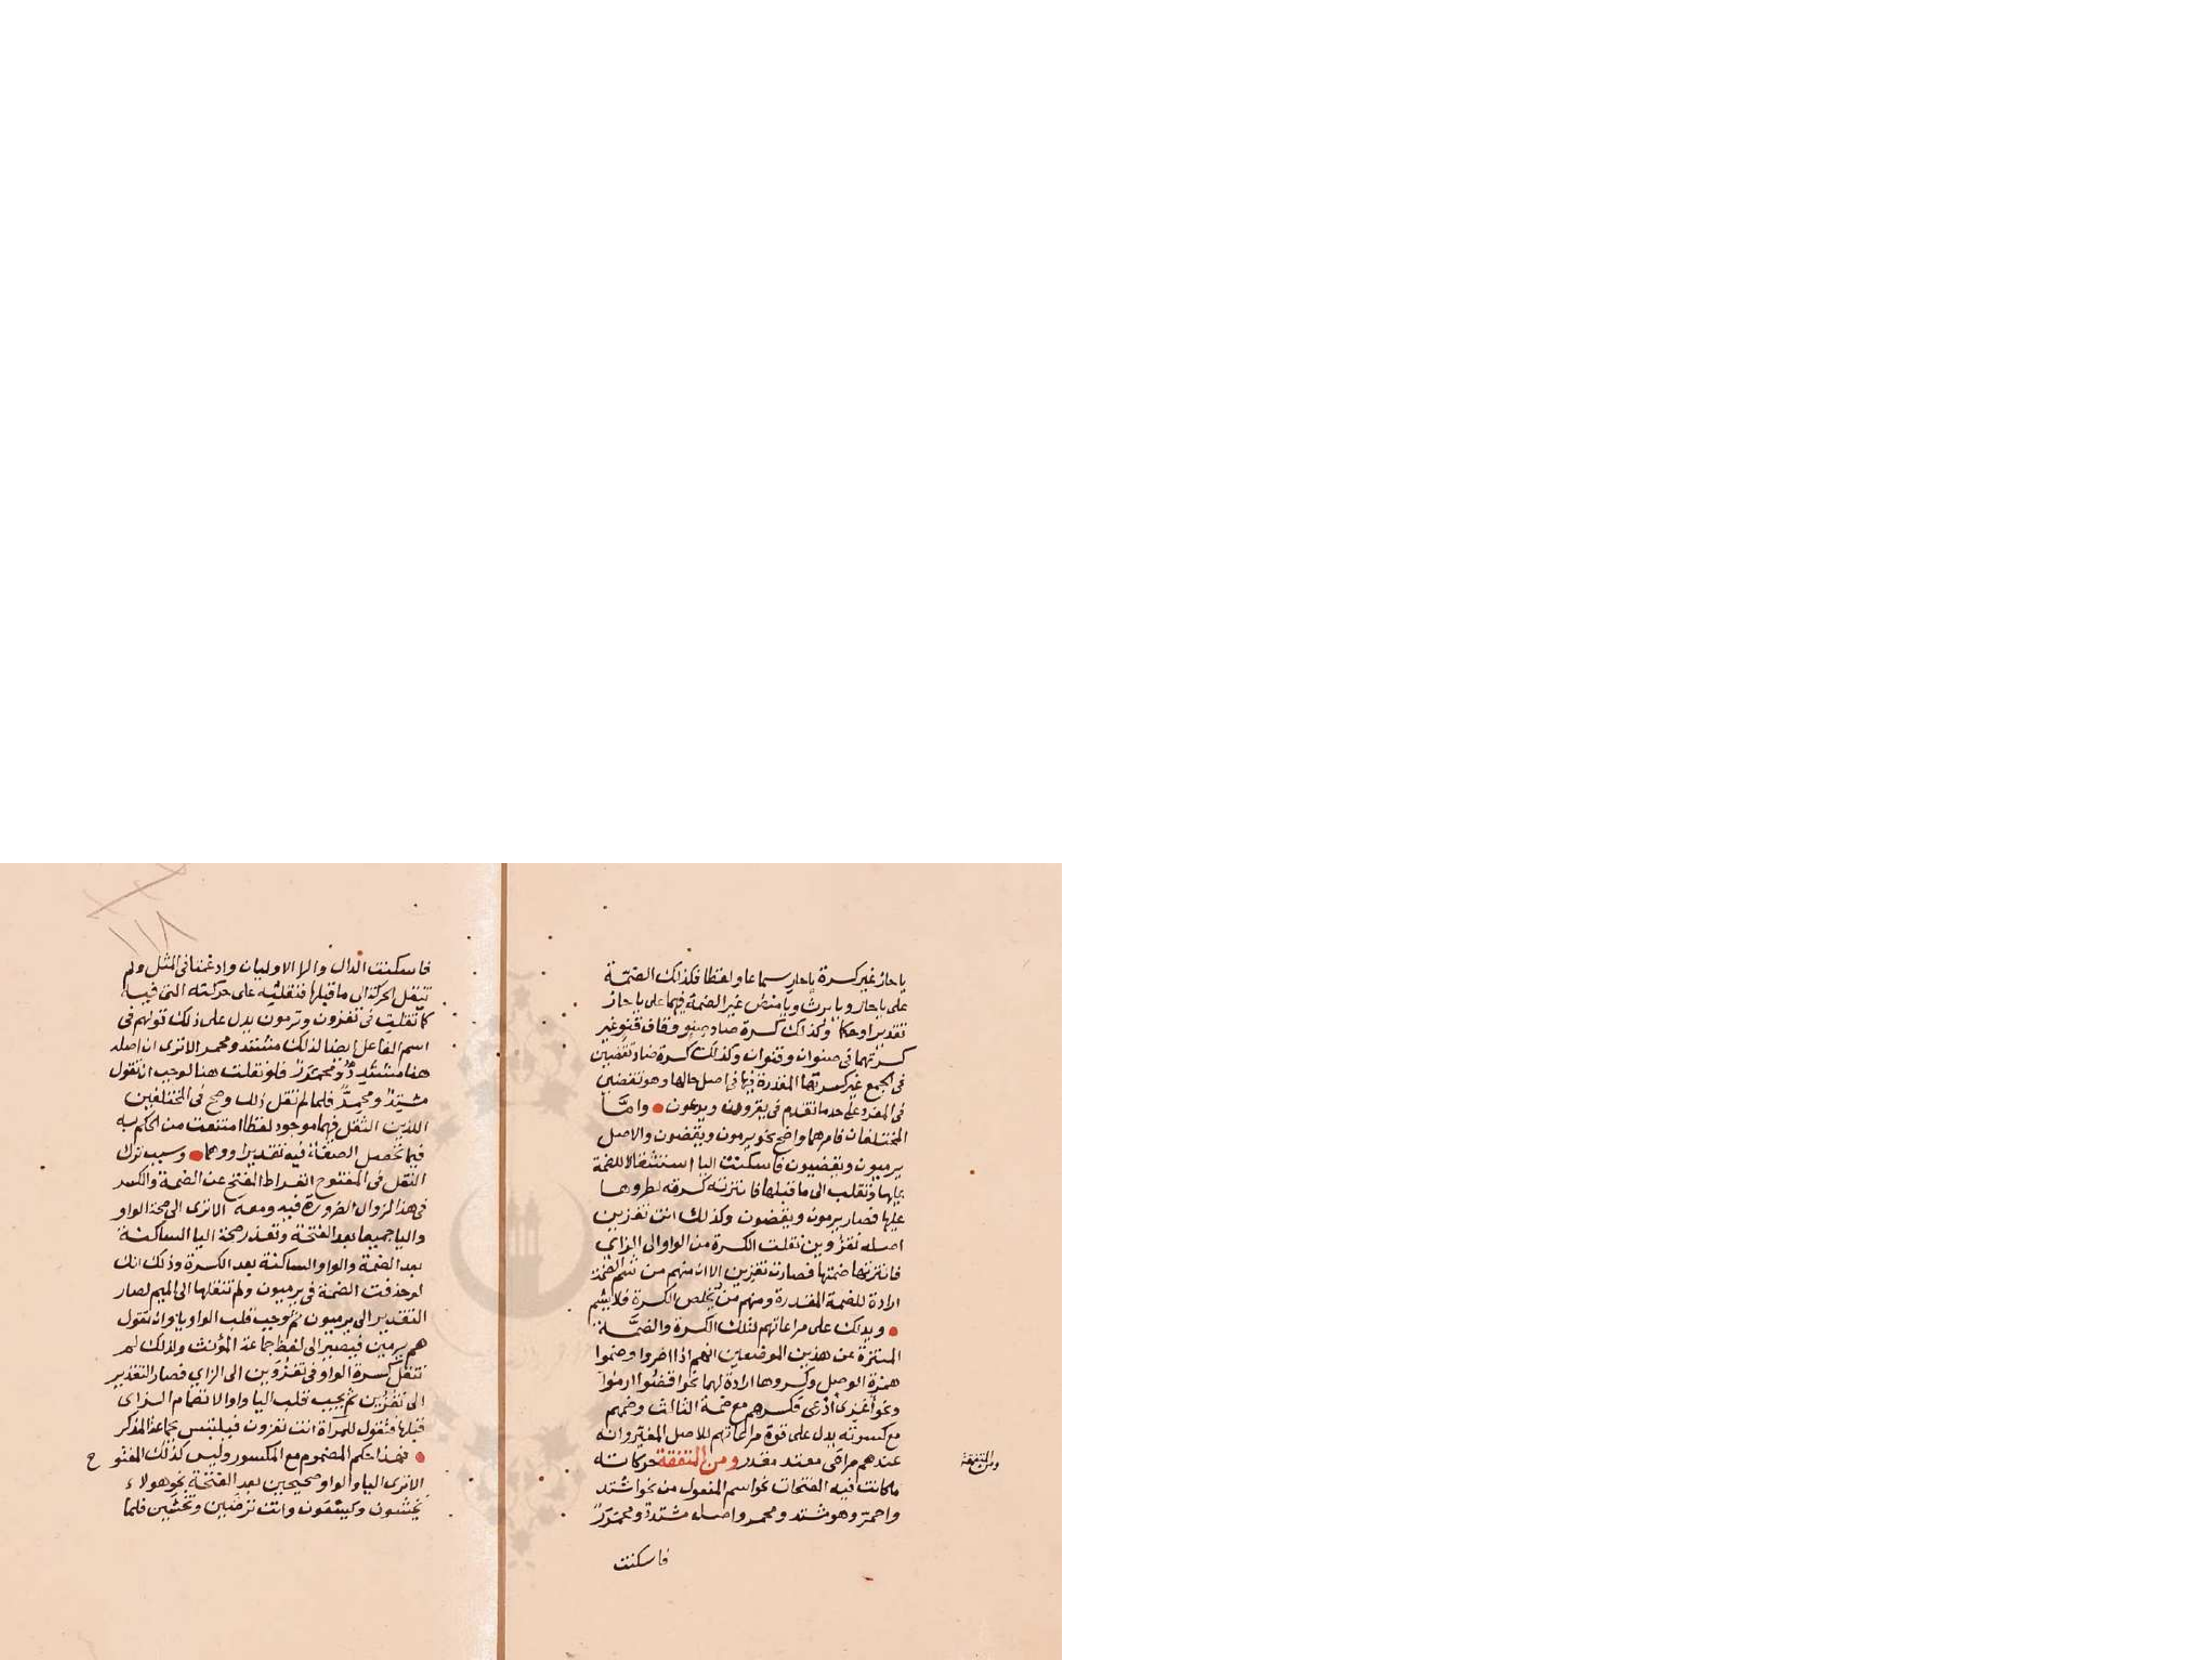 يا حار غير كسرة يا حار سماعا ولفظا فكذلك الضمة
على يا حار ويا برث ويا منص غير الضمة فيها على يا حار
تقديرا وحكما وكذلك كسرة صاد صنو وقاف قنو غير
كسرتهما في صنوان وقنوان وكذلك كسرة ضاد تقضين
في الجمع غير كسرتها المقدرة فيها في اصل حالها وهو تقضين
في المفرد على حد ما تقدم في يغزون ويدعون وامّا
المختلفان فامرهما واضح نحو يرمون ويقضون والاصل
يرميون ويقضيون فاسكنت اليا استثقالا للضمة
عليها ونقلت الى ما قبلها فابتزته كسرته لطروها
عليها فصار يرمون ويقضون وكذلك انت تغزين
اصله تغزوين نقلت الكسرة من الواو الى الزاي
فابتزتها ضمتها فصارت تغزين الا ان منهم من يشم الضمة
ارادة للضمة المقدرة ومنهم من يخلص الكسرة فلا يشم
ويدلك على مراعاتهم لتلك الكسرة والضمّة
المبتزة عن هذين الموضعين انهم اذا امروا وضموا
همزة الوصل وكسروها ارادة لهما نحو اقضوا ارموا
ونحو اغزى ادعى فكسرهم مع ضمة الثالث وضمهم
مع كسرته يدل على قوة مراعاتهم للاصل المغير وانه
عندهم مراعى معتد مقدر ومن المتفقة حركاته
ما كانت فيه الفتحات نحو اسم المفعول من نحو اشتد
واحمرّ وهو مشتد ومحمر واصله مشتدد ومحمرر
فاسكنت
ومن المتفقة
١١٨
فاسكنت الدال والرا الاوليان وادغمتا في المثل ولم
تنقل الحركة الى ما قبلها فتغلبه على حركته التي فيه
كما نقلت في تغزون وترمون يدل على ذلك قولهم في
اسم الفاعل ايضا كذلك مشتد ومحمر الا ترى ان اصله
هنا مشتدِد ومحمرِر فلو نقلت هنا لوجب ان تقول
مشتِدّ ومحمِرّ فلما لم تقل ذلك وصح في المختلفين
اللذين النقل فيهما موجود لفظا امتنعت من الحكم به
فيما تحصل الصنعة فيه تقديرا ووهما وسبب ترك
النقل في المفتوح انفراط الفتح عن الضمة والكسر
في هذا لزوال الضرورة فيه ومعه الا ترى الى صحة الواو
واليا جميعا بعد الفتحة وتعذر صحة اليا الساكنة
بعد الضمة والواو الساكنة بعد الكسرة وذلك انك
لو حذفت الضمة في يرميون ولم تنقلها الى الميم لصار
التقدير الى يرميون ثم وجب قلب الواو يا وان تقول
هم يرمين فيصير الى لفظ جماعة المؤنث ولذلك لم
تنقل كسرة الواو في تغزوين الى الزاي فصار التقدير
الى تغزين ثم يجب قلب اليا واوا لانضمام الزاى
قبلها فتقول للمرأة انت تغزون فيلتبس بجماعة المذكر
فهذا حكم المضموم مع المكسور وليس كذلك المفتو ح
الا ترى اليا والواو صحيحين بعد الفتحة نحو هولاء
يخشون ويسعون وانت ترضين وتخشين فلما